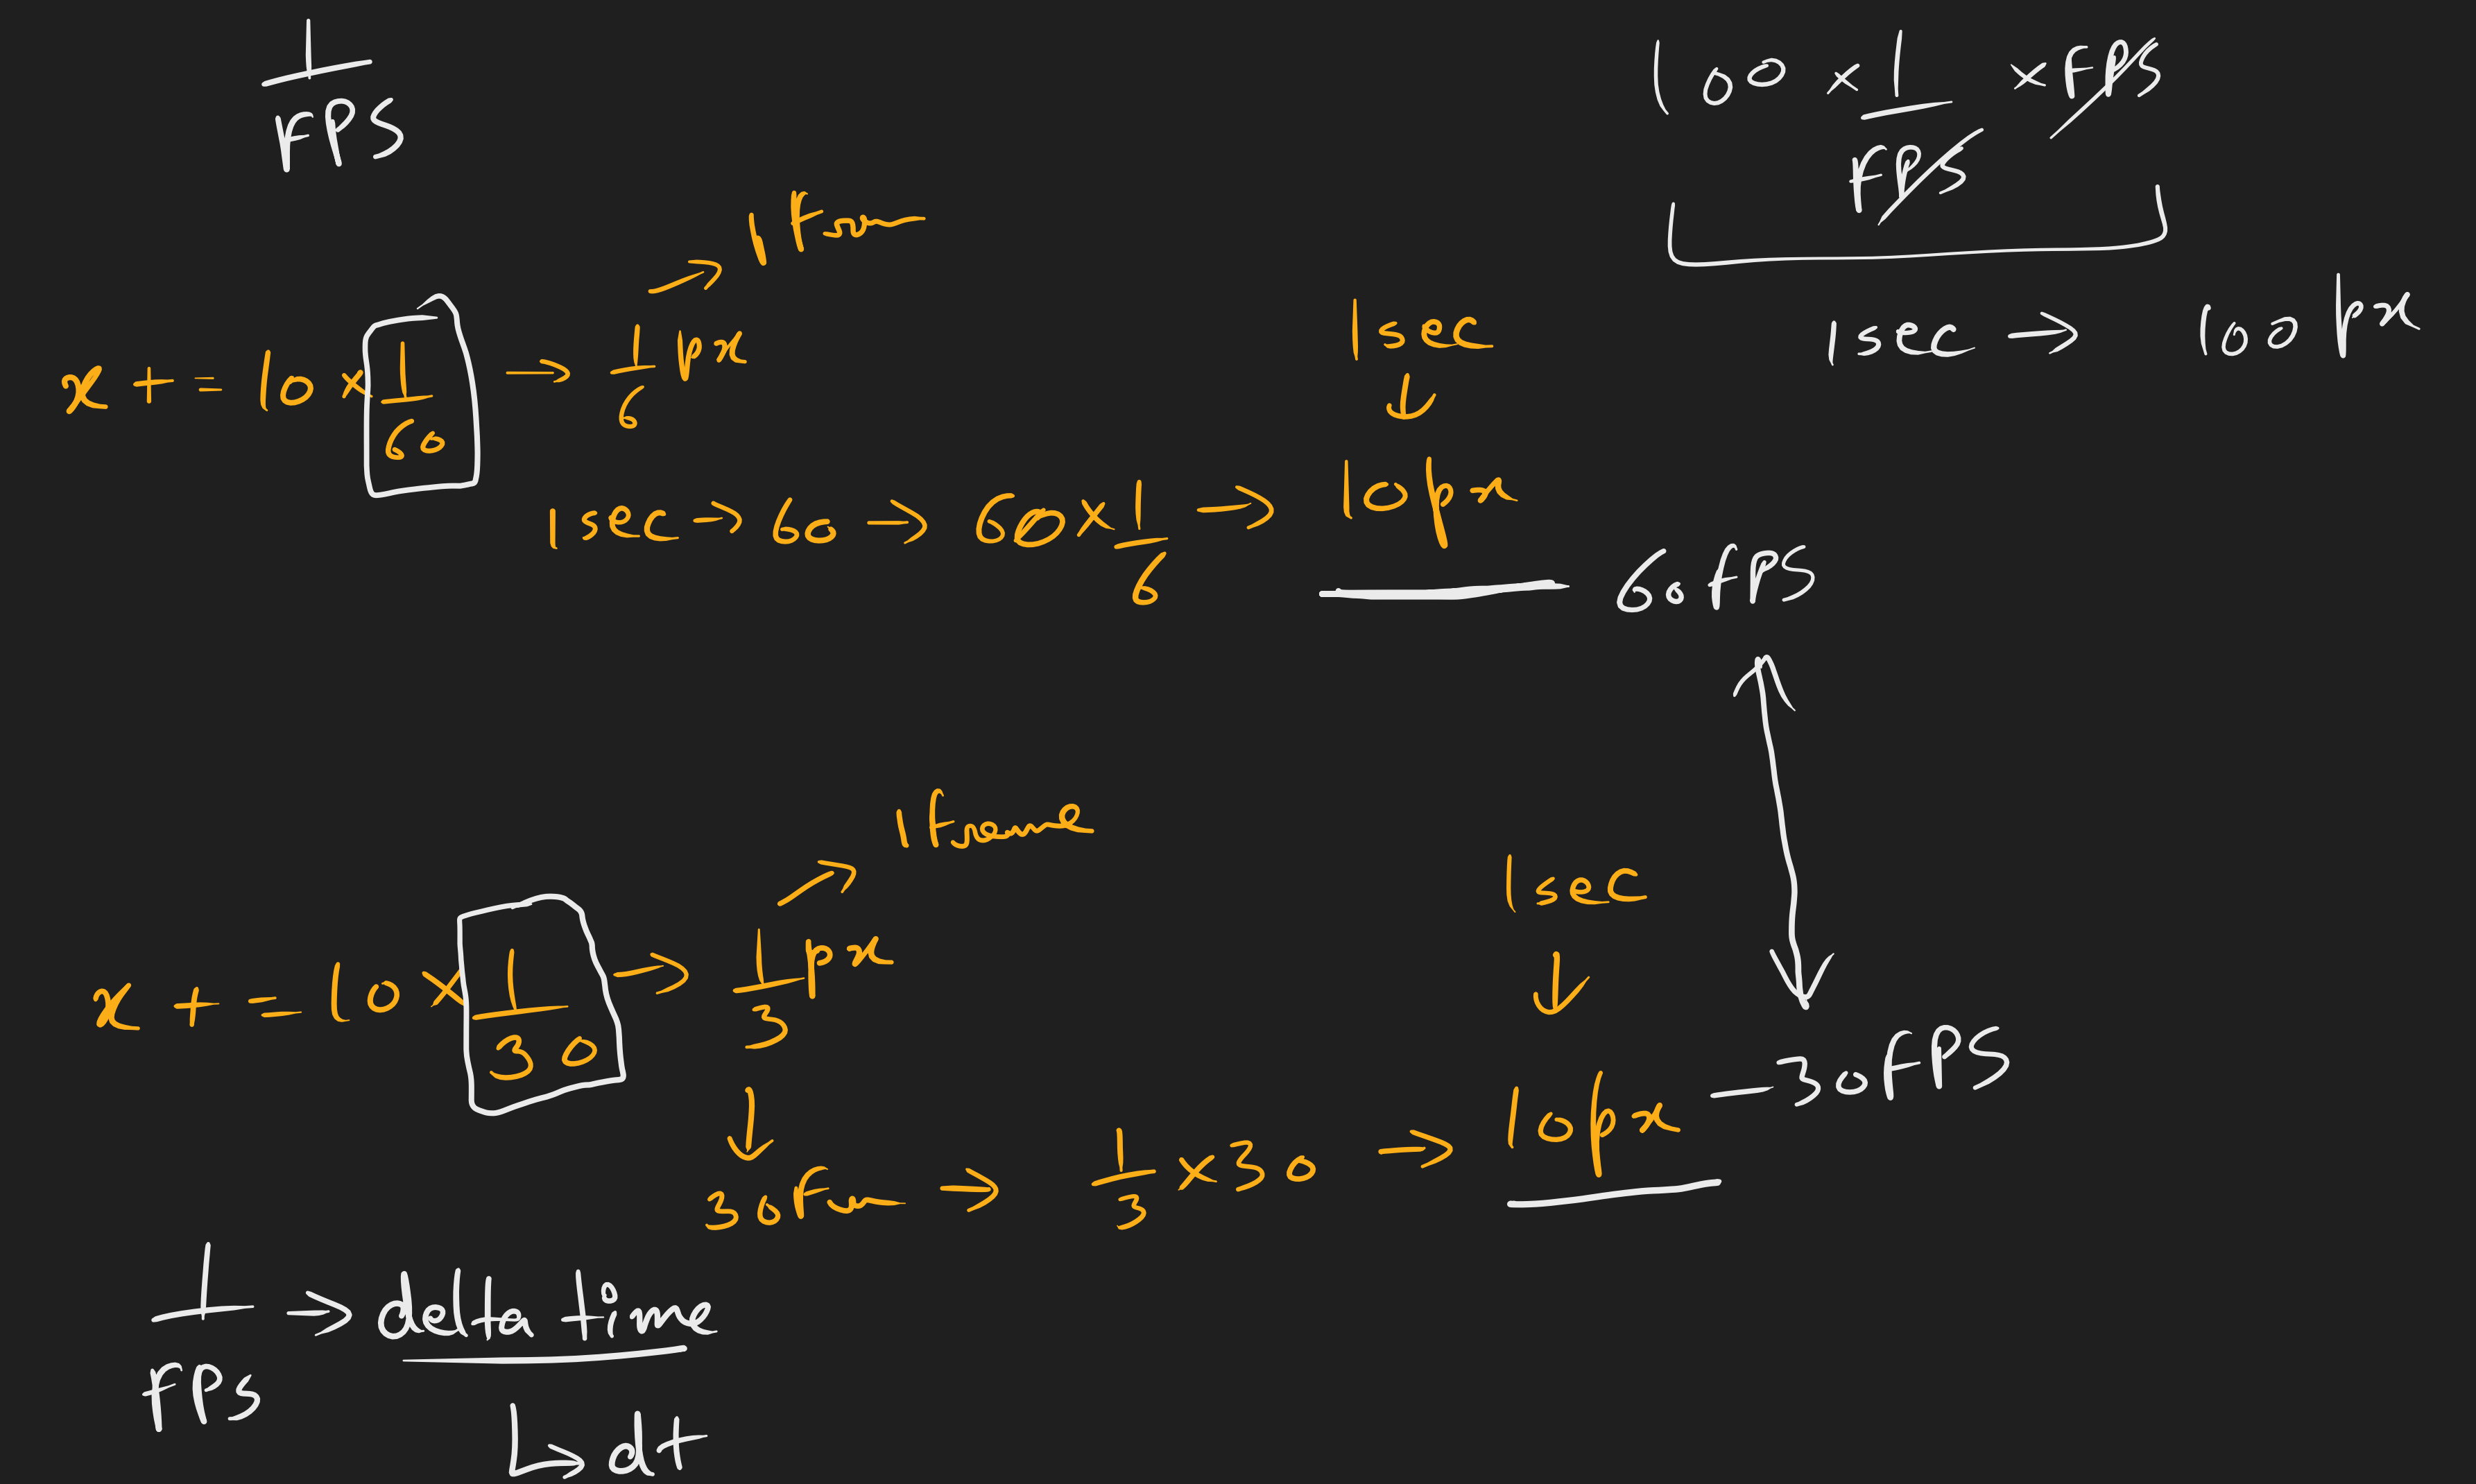 1/FPS
100 × 1/FPS × FPS
1 sec → 100px
→ 1
x += 10 × 1/60 → 1/6 px
1 sec
↓
1 sec → 60 → 60 × 1/6 → 10px
60FPS
→ 1 Frame
x += 10 × 1/30 → 1/3 px
1 sec
↓
↓
30 → 1/3 × 30 → 10px — 30FPS
1/FPS → delta time
↳ dt